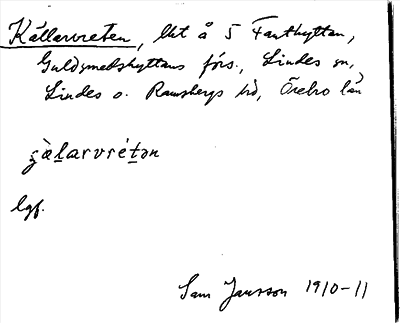 Källarvreten, lht å 5 Fanthyttan,
Guldsmedshyttans förs., Lindes sn,
Lindes o. Ramsbergs hd, Örebro län
ʒɑ̀̈larvrétən
lgf.
Sam Jansson 1910-11